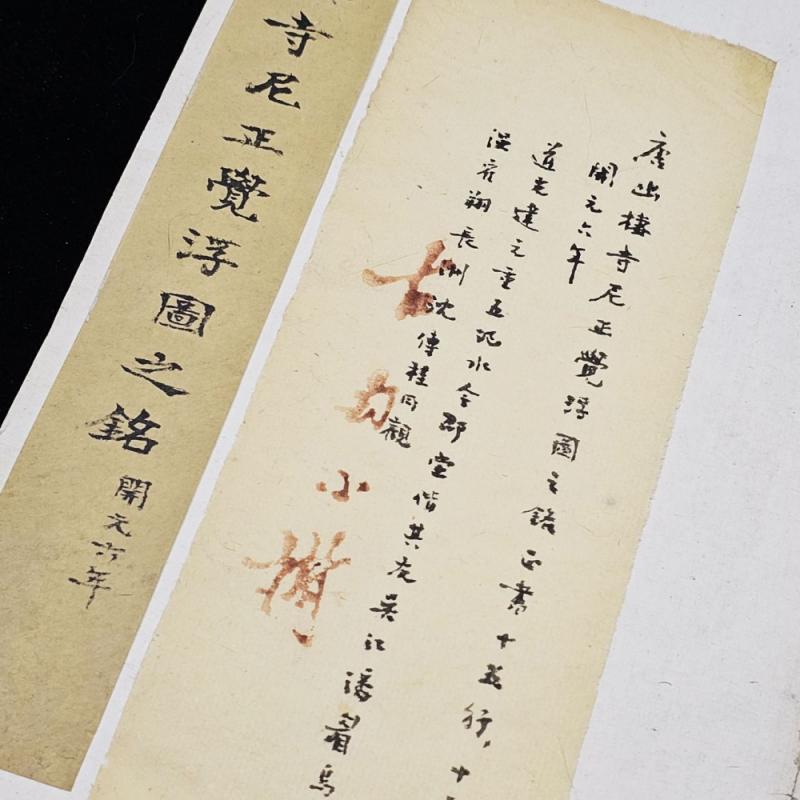 唐出棲寺尼正覺浮圖之銘正書十五行,十
開元六年
道光建元重五汜水令邵堂偕其友吳江潘眉烏
程 翔長洲沈傳程同觀
小
寺尼正覺浮圖之銘
開元六年